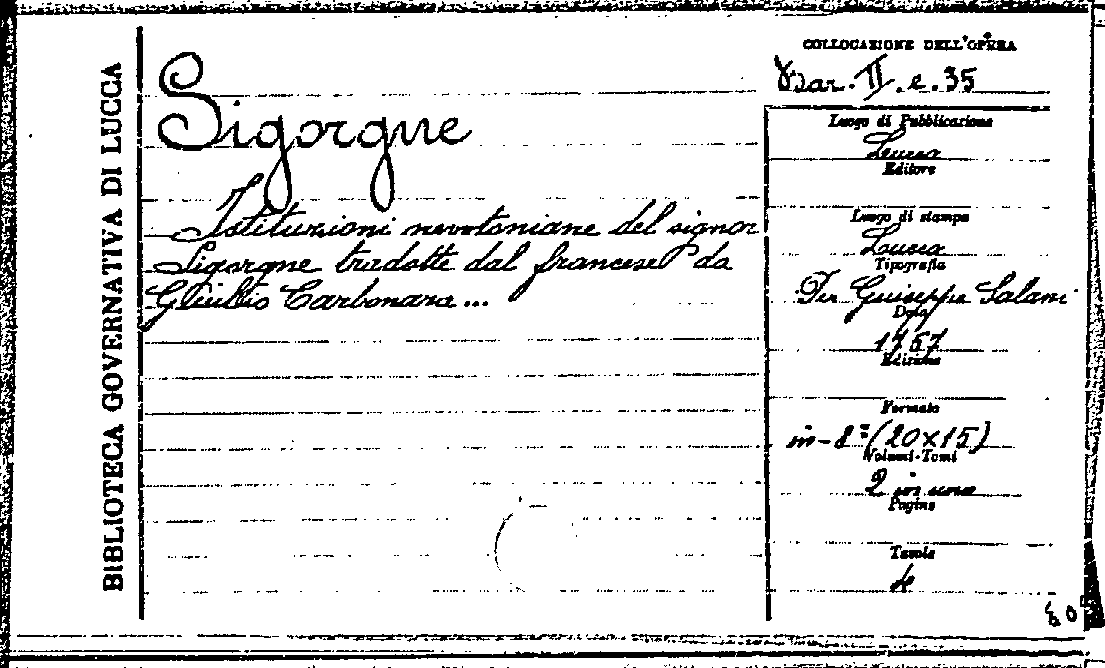 BIBLIOTECA GOVERNATIVA DI LUCCA
Sigorgne
Istituzioni newtoniane del signor
Sigorgne tradotte dal francese da
Giulio Carbonara...
COLLOCAZIONE DELL'OPERA
II. e. 35
Luogo di Pubblicazione
Lucca
Editore
Luogo di stampa
Lucca
Tipografia
Per Giuseppe Salani
Data
1757
Edizione
Formato
in-8º (20x15)
Volumi-Tomi
2 in uno
Pagine
Tavole